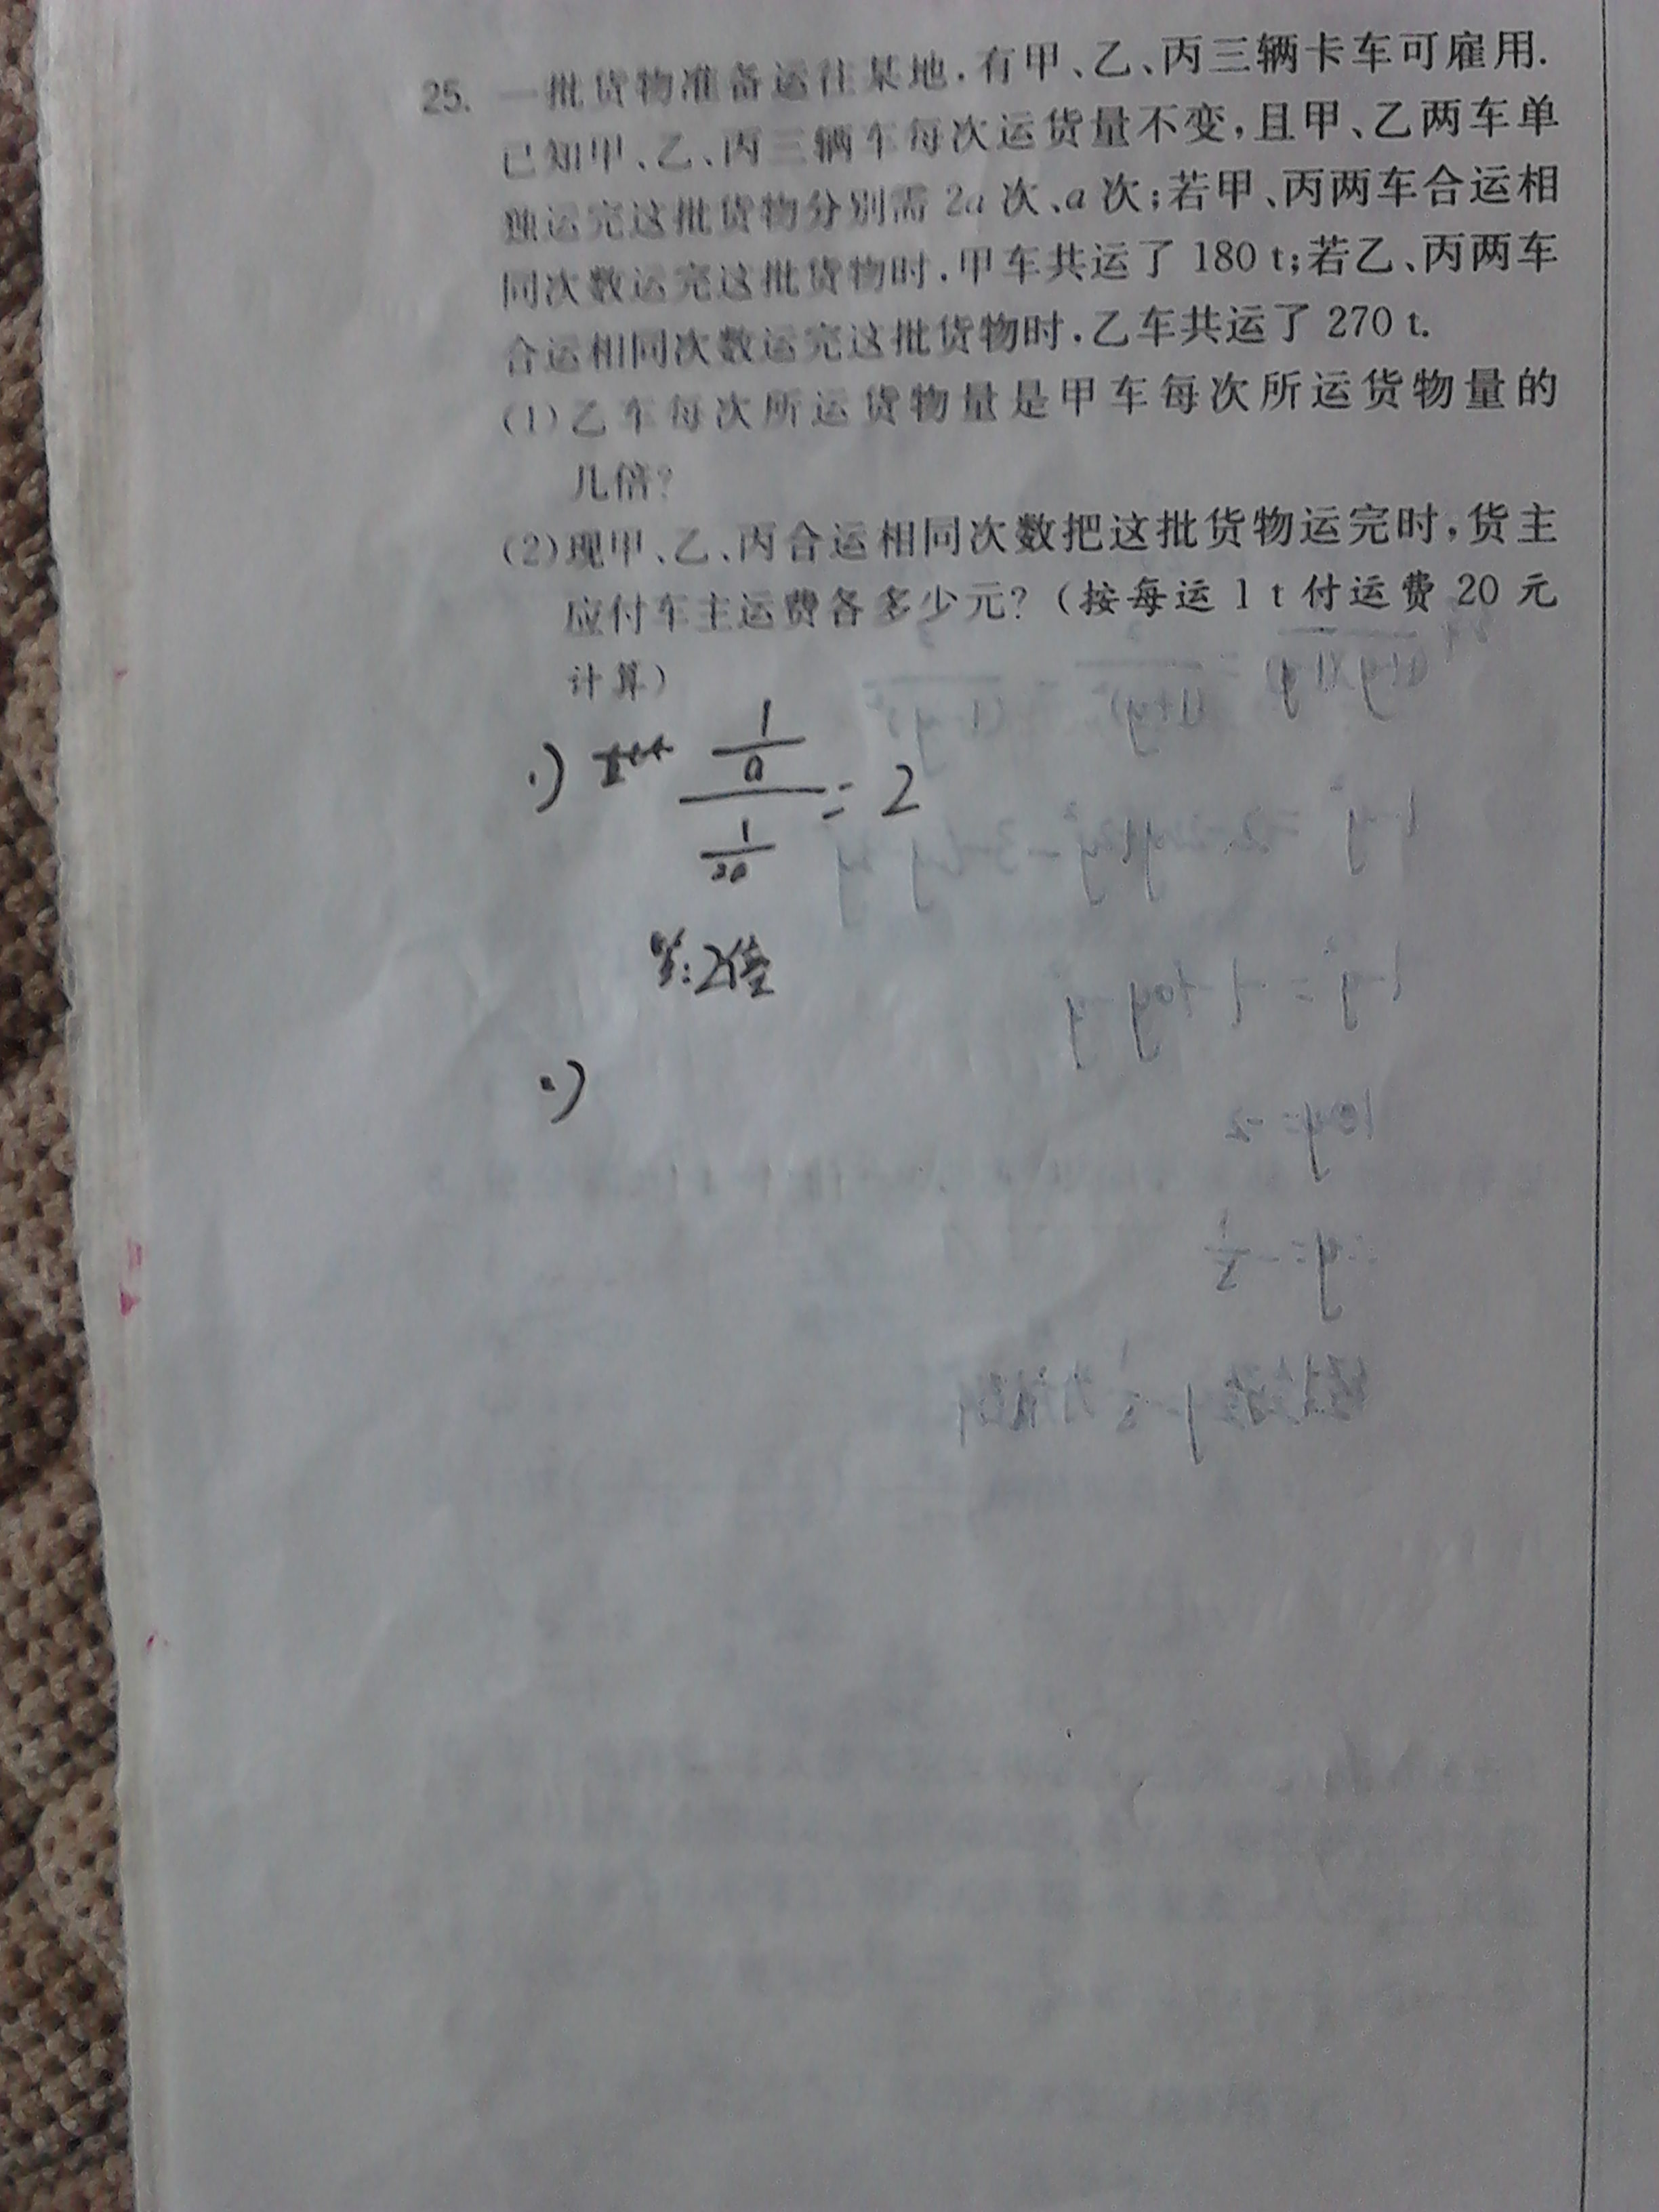 25. 一批货物准备运往某地,有甲、乙、丙三辆卡车可雇用.
已知甲、乙、丙三辆车每次运货量不变,且甲、乙两车单
独运完这批货物分别需 2a 次、a 次;若甲、丙两车合运相
同次数运完这批货物时,甲车共运了 180 t;若乙、丙两车
合运相同次数运完这批货物时,乙车共运了 270 t.
(1)乙车每次所运货物量是甲车每次所运货物量的
几倍?
(2)现甲、乙、丙合运相同次数把这批货物运完时,货主
应付车主运费各多少元?(按每运 1 t 付运费 20 元
计算)
1/a
= 2
1/2a
答:2倍